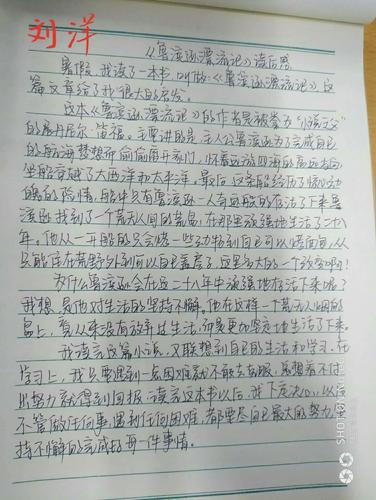 刘洋
《鲁滨逊漂流记》读后感
暑假,我读了一本书,叫做:《鲁滨逊漂流记》,这
篇文章给了我很大的启发。
这本《鲁滨逊漂流记》的作者是被拳为"小强之父"
的丹尼尔·笛福。主要讲的是:主人公鲁滨逊为了完成自己
的航海梦想而偷偷离开家门,怀着远游四海的高远志向
坐船穿越了大西洋和太平洋。最后,这条船经历了惊心动
魄的险情,船中只有鲁滨逊一人奇迹般的存活了下来,鲁
滨逊找到了一个荒无人间的荒岛,在那里顽强地生活了二十八
年。他从一开始的只会烤一些动物到自己可以烤面包,从
只能住在荒野外到可以自己盖房子,这是多大的一个改变啊!
为什么鲁滨逊会在这二十八年中顽强地存活下来呢?
我想,是他对生活的坚持不懈。他在这样一个荒无人烟的
岛上,看从来没有放弃过生活,而是更加坚定地生活了下来。
我读完这篇小说,又联想到自己的生活和学习。在
学习上,我只要遇到一点困难就不敢去克服,总想着不付
出努力就得到回报,读完这本书以后,我下定决心,以后
不管做任何事,遇到任何困难,都要尽自己最大的努力,坚
持不懈的完成好每一件事情。
SHOT ON